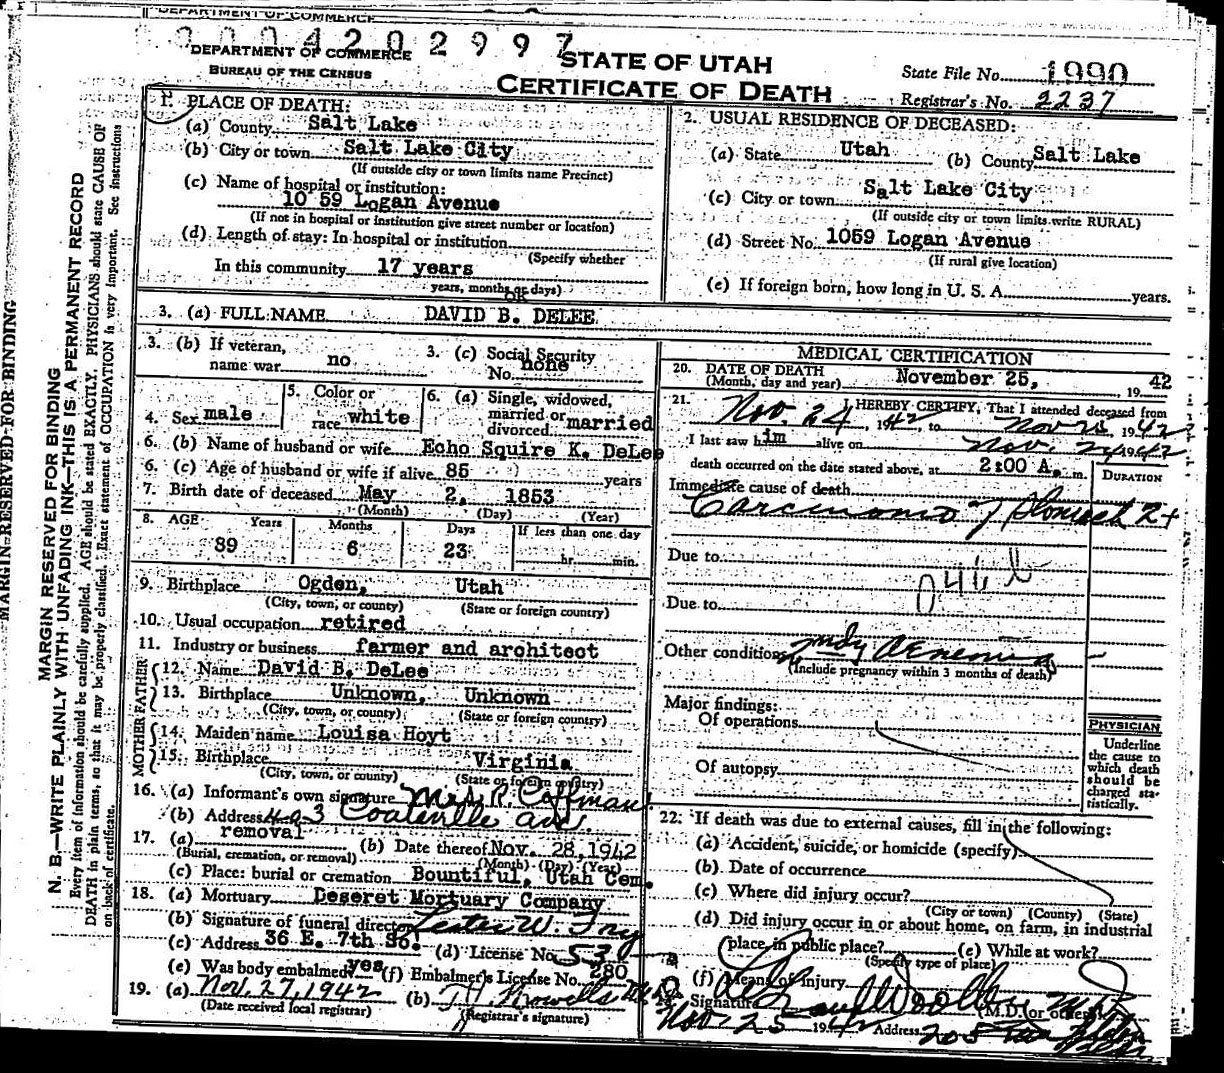 DEPARTMENT OF COMMERCE
3004202997
DEPARTMENT OF COMMERCE
BUREAU OF THE CENSUS
STATE OF UTAH
CERTIFICATE OF DEATH
State File No. 1990
Registrar's No. 2237
1. PLACE OF DEATH:
(a) County Salt Lake
(b) City or town Salt Lake City
(If outside city or town limits name Precinct)
(c) Name of hospital or institution:
10 59 Logan Avenue
(If not in hospital or institution give street number or location)
(d) Length of stay: In hospital or institution
(Specify whether
In this community 17 years
years, months or days)
2. USUAL RESIDENCE OF DECEASED:
(a) State Utah (b) County Salt Lake
(c) City or town Salt Lake City
(If outside city or town limits write RURAL)
(d) Street No. 1059 Logan Avenue
(If rural give location)
(e) If foreign born, how long in U. S. A. years.
3. (a) FULL NAME DAVID B. DELEE
3. (b) If veteran, name war no
3. (c) Social Security No. none
4. Sex male
5. Color or race white
6. (a) Single, widowed, married or divorced married
6. (b) Name of husband or wife Echo Squire K. DeLee
6. (c) Age of husband or wife if alive 85 years
7. Birth date of deceased May 2, 1853
(Month) (Day) (Year)
8. AGE Years Months Days If less than one day
89 6 23 hr. min.
9. Birthplace Ogden, Utah
(City, town, or county) (State or foreign country)
10. Usual occupation retired
11. Industry or business farmer and architect
FATHER
12. Name David B. DeLee
13. Birthplace Unknown, Unknown
(City, town, or county) (State or foreign country)
MOTHER
14. Maiden name Louisa Hoyt
15. Birthplace Virginia
(City, town, or county) (State or foreign country)
16. (a) Informant's own signature Mrs. R. Coffman
(b) Address Coatsville Ave
17. (a) removal (b) Date thereof Nov. 28, 1942
(Burial, cremation, or removal) (Month) (Day) (Year)
(c) Place: burial or cremation Bountiful, Utah Cem.
18. (a) Mortuary Deseret Mortuary Company
(b) Signature of funeral director
(c) Address 36 E. 7th So. (d) License No. 530
(e) Was body embalmed? yes (f) Embalmer's License No. 280
19. (a) Nov. 27, 1942 (b)
(Date received local registrar) (Registrar's signature)
MEDICAL CERTIFICATION
20. DATE OF DEATH
(Month, day and year) November 25, 19 42
21. I HEREBY CERTIFY, That I attended deceased from
Nov. 24 1942 to Nov 25, 1942
I last saw him alive on Nov. 24 1942
death occurred on the date stated above, at 2:00 A. m.
DURATION
Immediate cause of death
Carcinoma of Stomach 2+
Due to
046 b
Due to
Other conditions
(Include pregnancy within 3 months of death)
Major findings:
Of operations
Of autopsy
PHYSICIAN
Underline the cause to which death should be charged statistically.
22. If death was due to external causes, fill in the following:
(a) Accident, suicide, or homicide (specify)
(b) Date of occurrence
(c) Where did injury occur?
(City or town) (County) (State)
(d) Did injury occur in or about home, on farm, in industrial
place, in public place? (e) While at work?
(Specify type of place)
(f) Means of injury
Signature
(M.D. or other)
Nov. 25 1942 Address 205
MARGIN RESERVED FOR BINDING
MARGIN RESERVED FOR BINDING
N. B.—WRITE PLAINLY WITH UNFADING INK—THIS IS A PERMANENT RECORD
Every item of information should be carefully supplied. AGE should be stated EXACTLY. PHYSICIANS should state CAUSE OF
DEATH in plain terms, so that it may be properly classified. Exact statement of OCCUPATION is very important. See instructions
on back of certificate.